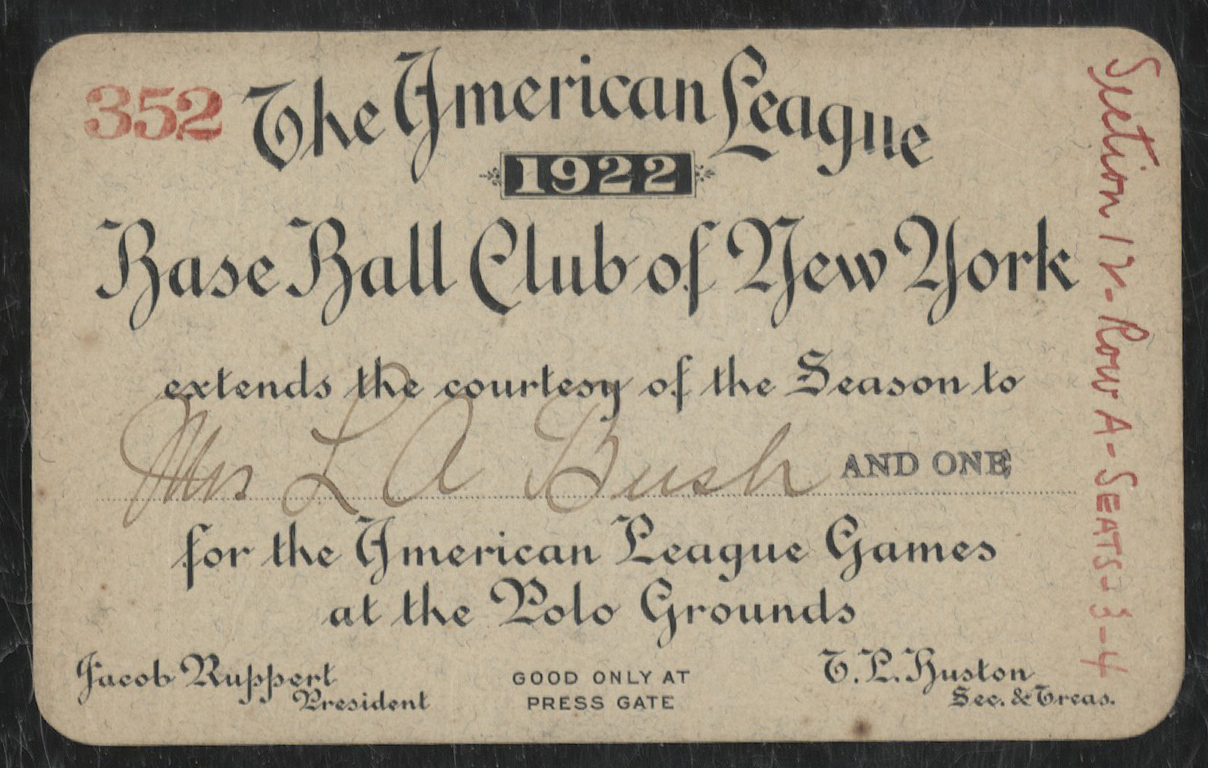 352 The American League
1922
Base Ball Club of New York
extends the courtesy of the Season to
Mrs L A Bush AND ONE
for the American League Games
at the Polo Grounds
Jacob Ruppert
President
GOOD ONLY AT
PRESS GATE
T. L. Huston
Sec. & Treas.
Section 12 - Row A - SEATS - 3 - 4